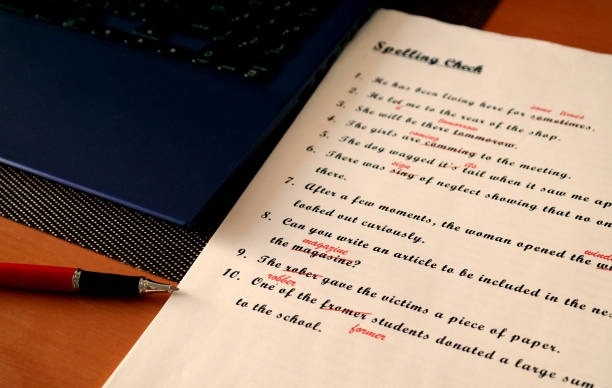 Spelling Check
some times
1. He has been living here for sometimes.
2. He me to the rear of the shop.
tomorrow
3. She will be there tommorow.
coming
4. The girls are comming to the meeting.
its
5. The dog wagged it's tail when it saw me ap
sign
6. There was sing of neglect showing that no on
there.
wind
7. After a few moments, the woman opened the
looked out curiously.
8. Can you write an article to be included in the ne
magazine
the magasine?
9. The rober gave the victims a piece of paper.
robber
10. One of the fromer students donated a large sum
former
to the school.